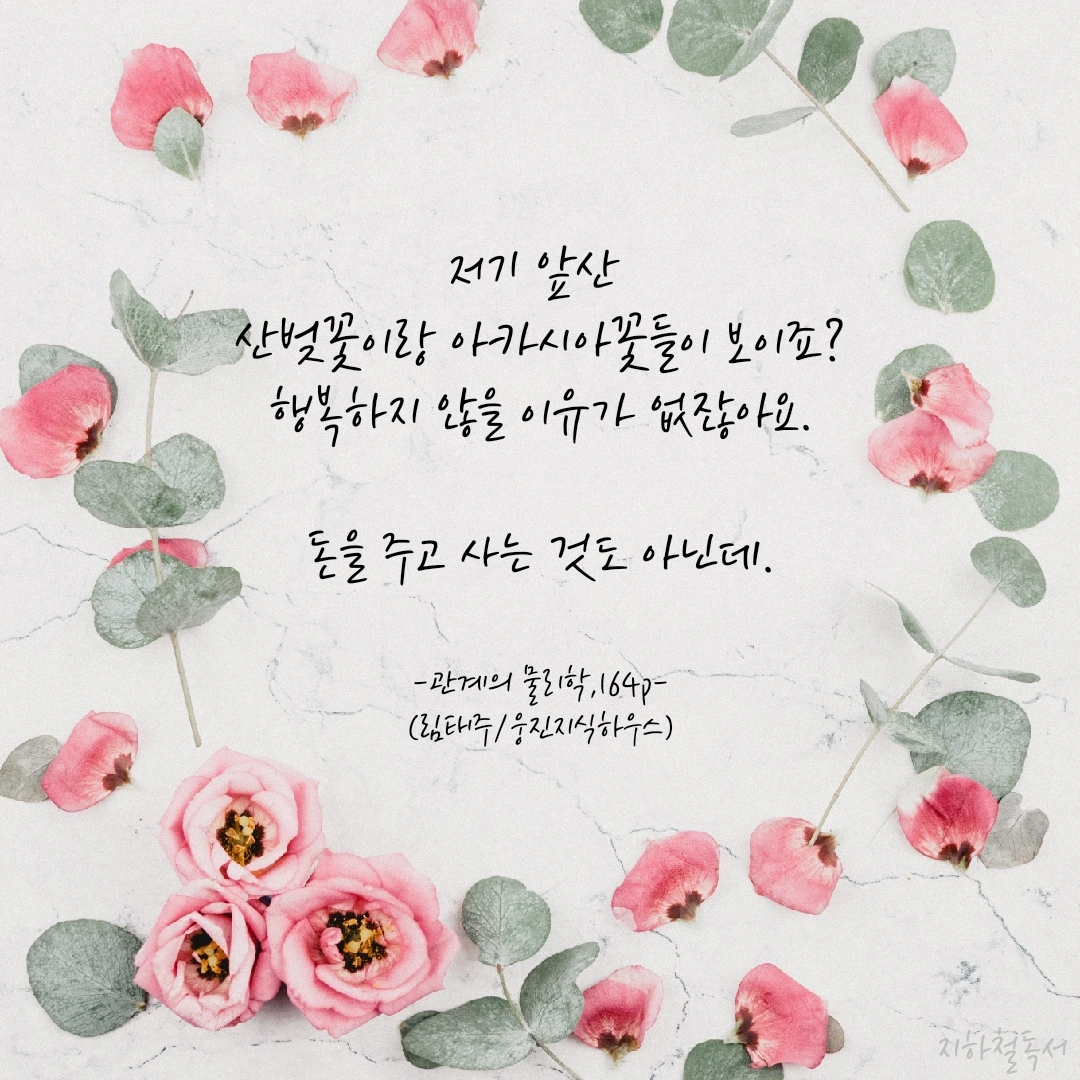 저기 앞산
산벚꽃이랑 아카시아꽃들이 보이죠?
행복하지 않을 이유가 없잖아요.
돈을 주고 사는 것도 아닌데.
-관계의 물리학,164p-
(림태주/웅진지식하우스)
지하철독서